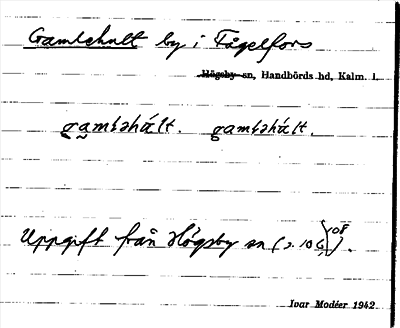 Gamlehult by i Fågelfors
Högsby sn, Handbörds hd, Kalm. l.
gamləhúlt. gamləhúlt.
Uppgift från Högsby sn (s. 108).
Ivar Modéer 1942